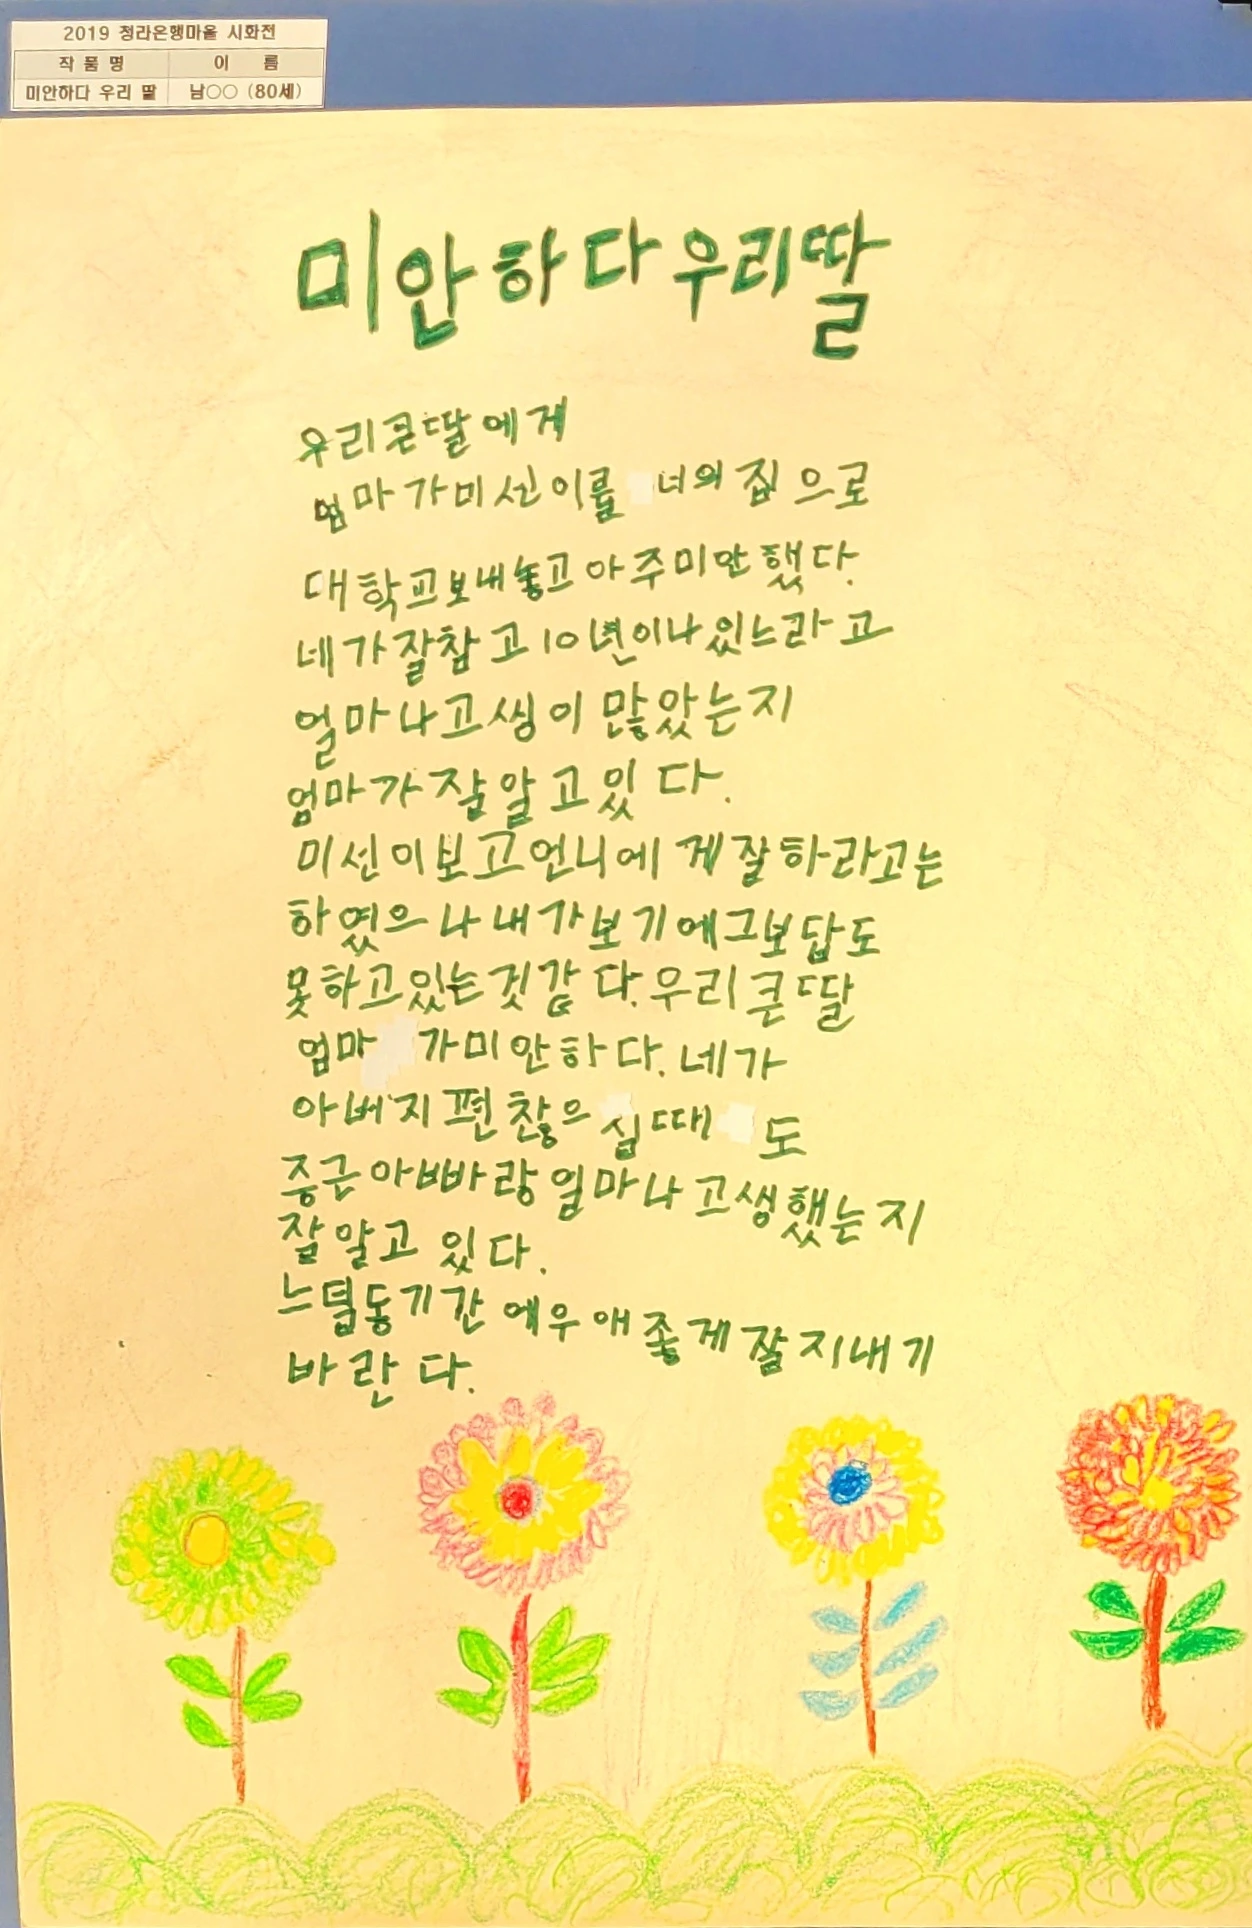 2019 청라은행마을 시화전
작 품 명 이 름
미안하다 우리 딸 남○○ (80세)
미안하다 우리딸
우리큰딸에게
엄마가미선이를 너의집으로
대학교보내놓고아주미안했다.
네가잘참고10년이나있느라고
얼마나고생이많았는지
엄마가잘알고있다.
미선이보고언니에게잘하라고는
하였으나내가보기에그보답도
못하고있는것갇다.우리큰딸
엄마 가미안하다.네가
아버지편찮으 실때 도
중근아빠랑얼마나고생했는지
잘알고있다.
느덜동기간에우애좋게잘지내기
바란다.